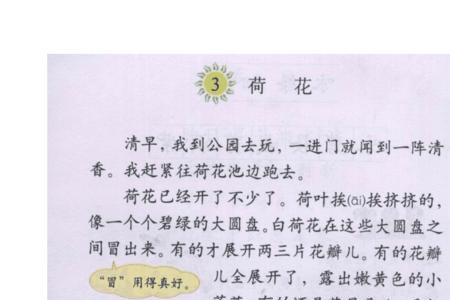 3 荷 花
清早，我到公园去玩，一进门就闻到一阵清
香。我赶紧往荷花池边跑去。
荷花已经开了不少了。荷叶挨(āi)挨挤挤的，
像一个个碧绿的大圆盘。白荷花在这些大圆盘之
间冒出来。有的才展开两三片花瓣儿。有的花瓣
儿全展开了，露出嫩黄色的小
“冒”用得真好。